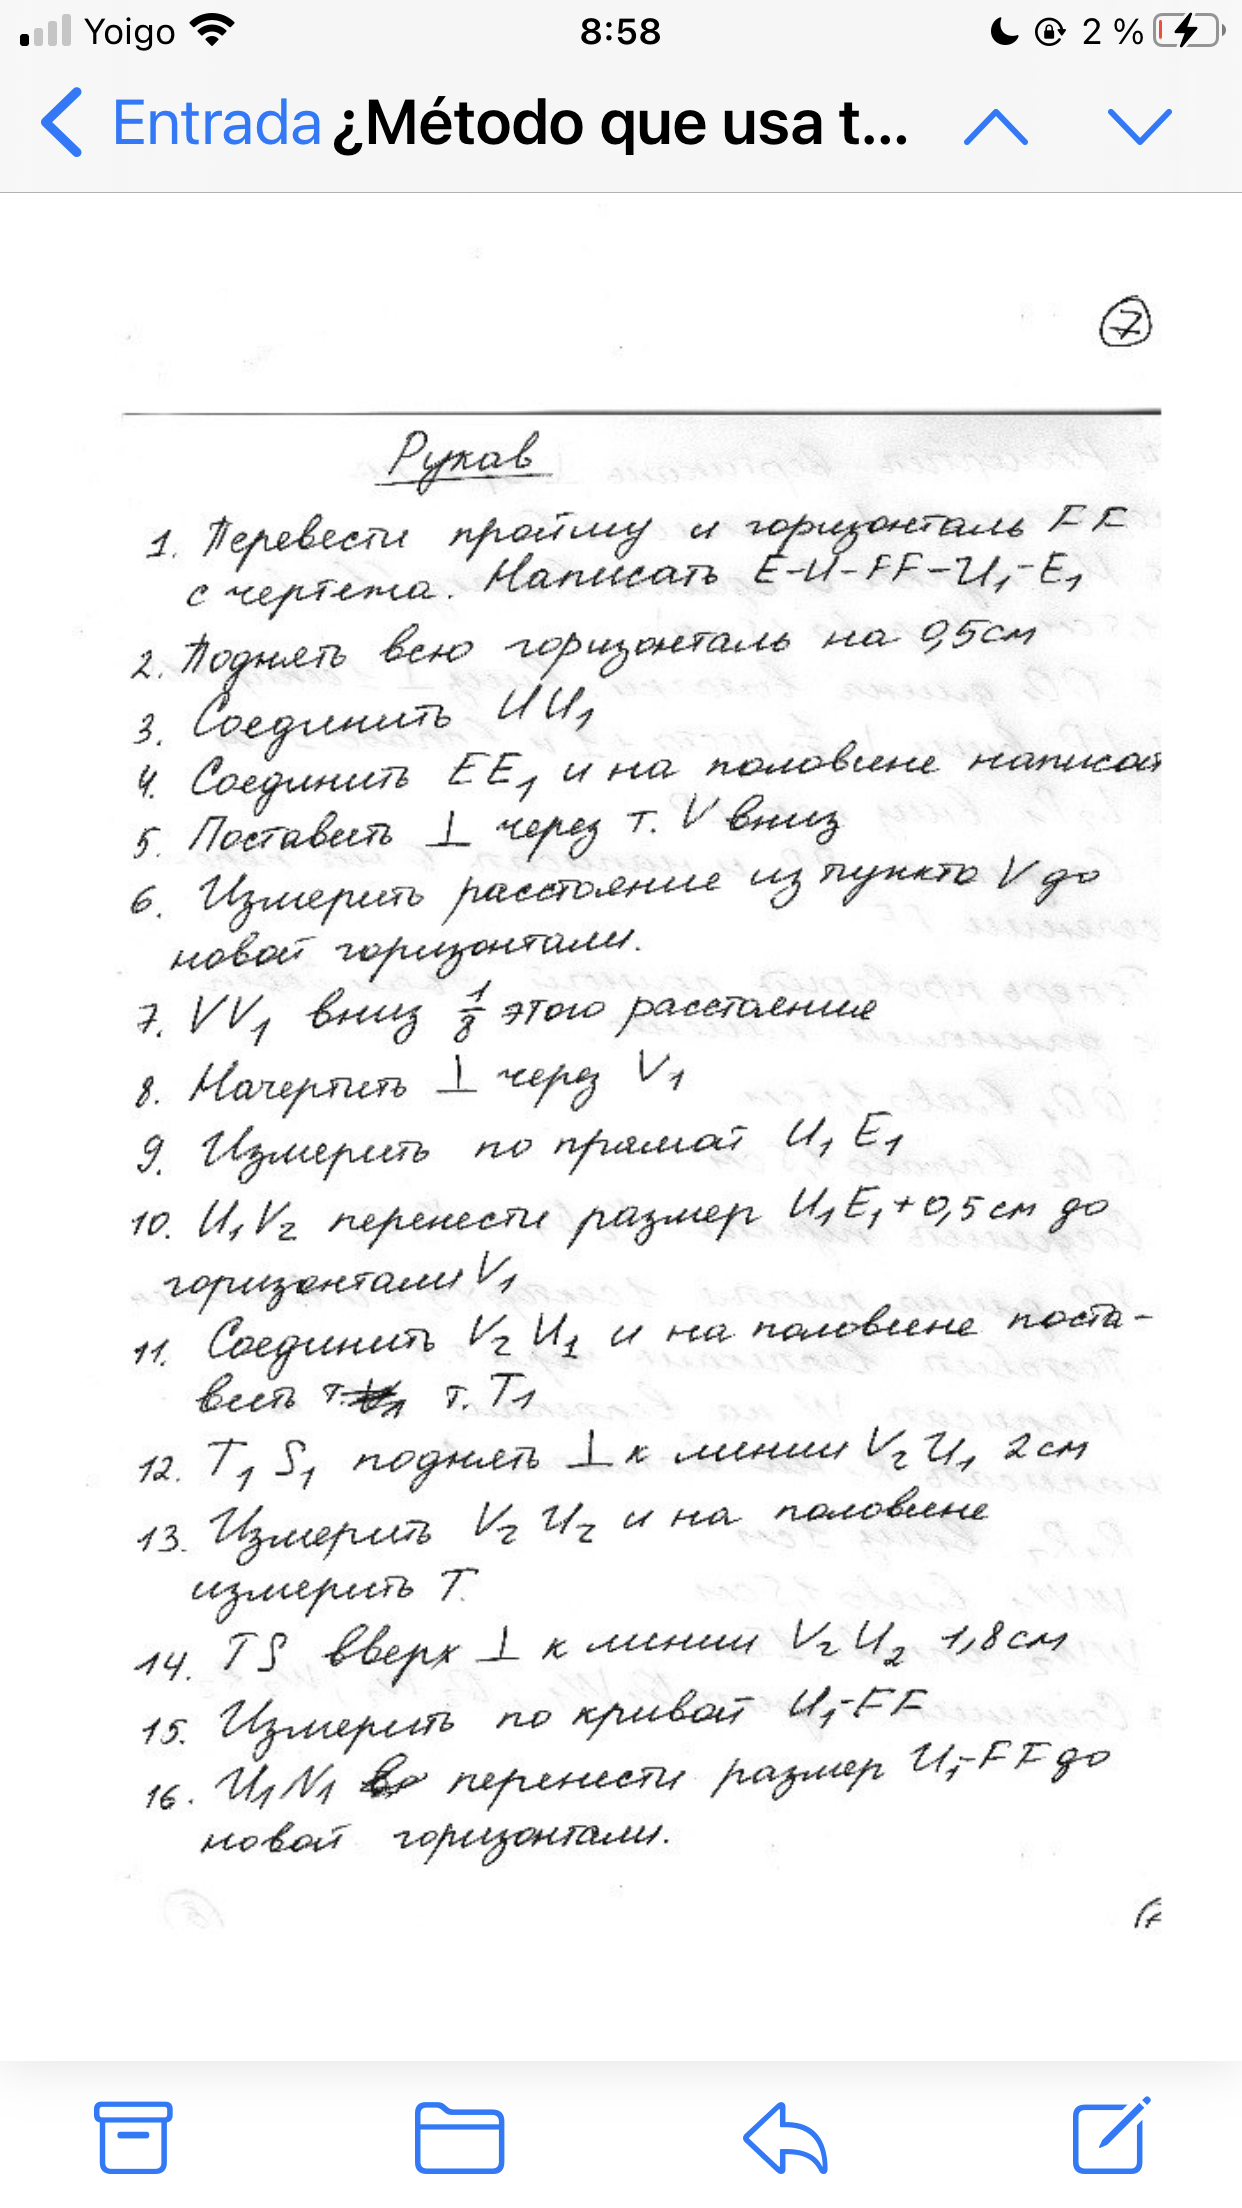 Yoigo 8:58 2 %
Entrada ¿Método que usa t...
7
Рукав
1. Перевести пройму и горизонталь FF
с чертежа. Написать E-U-FF-U₁-E₁
2. Поднять всю горизонталь на 0,5см
3. Соединить UU₁
4. Соединить EE₁ и на половине написат
5. Поставить ⊥ через т. V вниз
6. Измерить расстояние из пункта V до
новой горизонтали.
7. VV₁ вниз 1/8 этого расстояние
8. Начертить ⊥ через V₁
9. Измерить по прямой U₁E₁
10. U₁V₂ перенести размер U₁E₁+0,5см до
горизонтали V₁
11. Соединить V₂U₁ и на половине поста-
вить т. т. T₁
12. T₁S₁ поднять ⊥ к линии V₂U₁ 2см
13. Измерить V₂U₂ и на половине
измерить T.
14. TS вверх ⊥ к линии V₂U₂ 1,8см
15. Измерить по кривой U₁-FF
16. U₁N₁ перенести размер U₁-FF до
новой горизонтали.